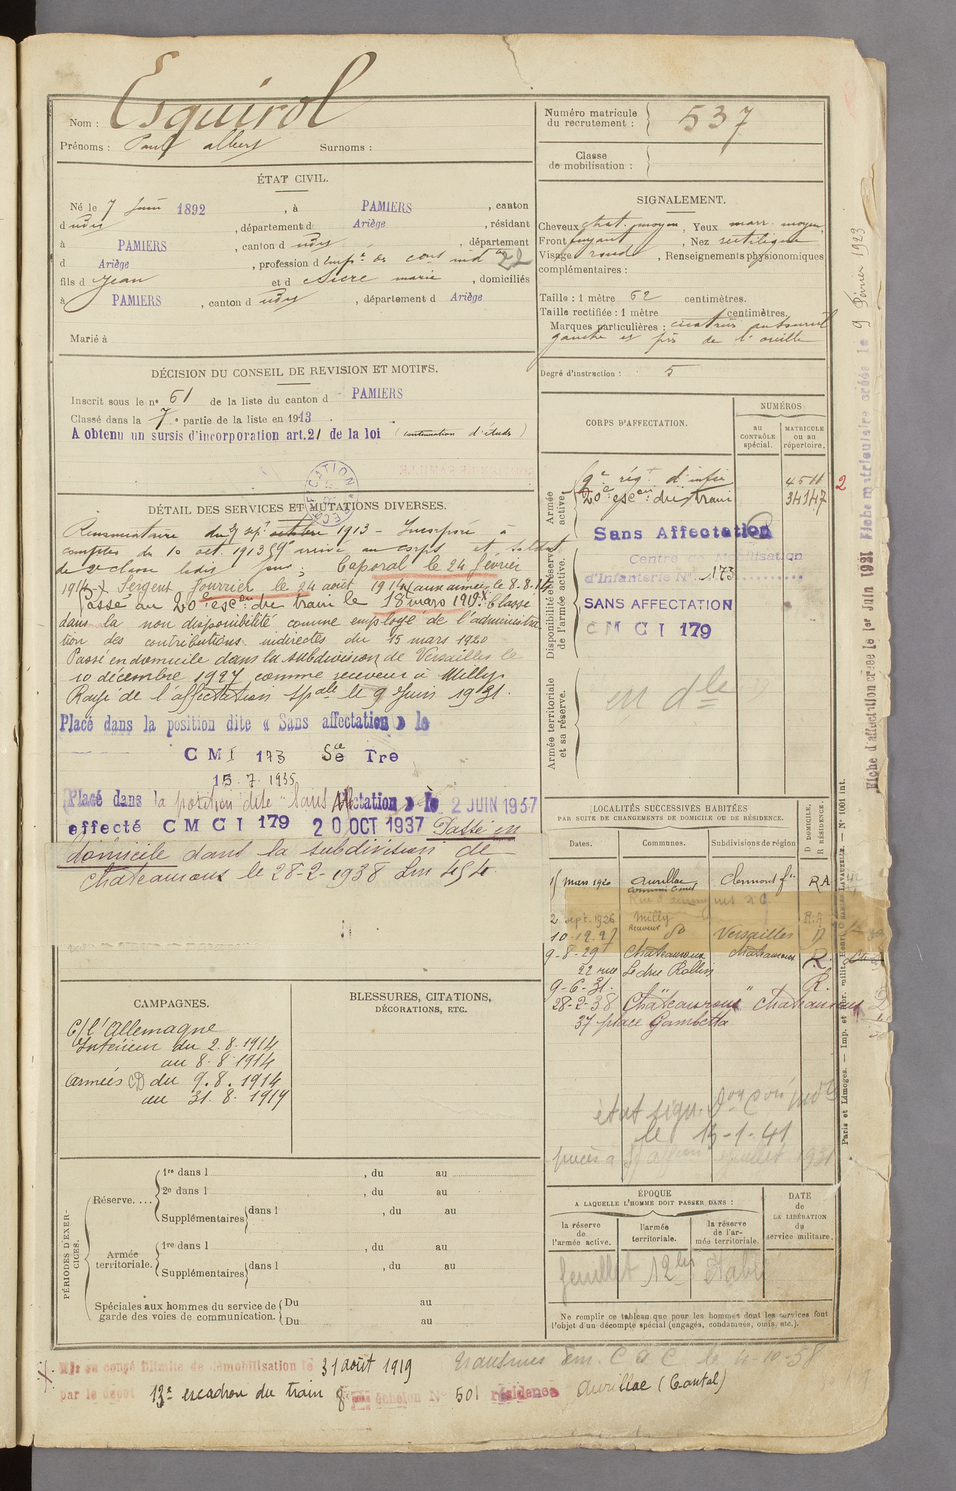 Nom : Esquirol
Prénoms : Paul albert Surnoms :
ÉTAT CIVIL.
Né le 7 Juin 1892, à PAMIERS, canton
d udy, département d Ariège, résidant
à PAMIERS, canton d udy, département
d Ariège, profession d' Emp. de cont ind tes 22
fils d Jean et d Sicre marie, domiciliés
à PAMIERS, canton d udy, département d Ariège
Marié à
DÉCISION DU CONSEIL DE REVISION ET MOTIFS.
Inscrit sous le no 61 de la liste du canton d PAMIERS
Classé dans la 7e partie de la liste en 1913.
A obtenu un sursis d'incorporation art. 21 de la loi (continuation d'études)
DÉTAIL DES SERVICES ET MUTATIONS DIVERSES.
octobre 1913 - Incorporé à
compter du 10 oct. 1913 arrivé au corps et soldat
de 2e classe ledit jour; Caporal le 24 février
1914 Sergent fourrier le 24 août 1914 (aux armées le 8-8-14)
Passé au 20e esc on du train le 18 mars 1917 Classé
dans la non disponibilité comme employé de l'administra
tion des contributions indirectes du 15 mars 1920
Passé en domicile dans la subdivision de Versailles le
10 décembre 1927 comme receveur à Milly
Rayé de l'affectation spale le 9 Juin 1931.
Placé dans la position dite « Sans affectation » le
CMI 173 Sée Tre
15.7.1935
Placé dans la position dite "Sans Affectation » le 2 JUIN 1937
effecté CMGI 179 20 OCT 1937 Passé en
domicile dans la subdivision de
Châteauroux le 28-2-1938
CAMPAGNES.
C/ l'Allemagne
Intérieur du 2.8.1914
au 8.8.1914
Armées CD du 9.8.1914
au 31.8.1919
BLESSURES, CITATIONS,
DÉCORATIONS, ETC.
PÉRIODES D'EXERCICES.
Réserve....
1re dans l , du au
2e dans l , du au
Supplémentaires dans l , du au
Armée territoriale.
1re dans l , du au
Supplémentaires dans l , du au
Spéciales aux hommes du service de
garde des voies de communication.
Du au
Du au
en congé illimité de démobilisation le 31 août 1919
par le dépôt 13e escadron du train 8e échelon No 501 résidence Aurillac (Cantal)
Numéro matricule
du recrutement : 537
Classe
de mobilisation :
SIGNALEMENT.
Cheveux chat. moyen, Yeux marr. moyen,
Front fuyant, Nez rectiligne
Visage rond, Renseignements physionomiques
complémentaires :
Taille : 1 mètre 62 centimètres.
Taille rectifiée : 1 mètre centimètres.
Marques particulières : cicatrice au sourcil
gauche et près de l'oreille
Degré d'instruction : 5
CORPS D'AFFECTATION.
NUMÉROS
AU CONTRÔLE spécial.
MATRICULE OU AU répertoire.
Armée active.
9e régt d'infie 4511
20e esc on du train 34147
2
Disponibilité et réserve de l'armée active.
Sans Affectation
Centre de Mobilisation
d'Infanterie No 173
SANS AFFECTATION
CMGI 179
Armée territoriale et sa réserve.
en dle
LOCALITÉS SUCCESSIVES HABITÉES
PAR SUITE DE CHANGEMENTS DE DOMICILE OU DE RÉSIDENCE.
Dates. Communes. Subdivisions de région D DOMICILE. R RÉSIDENCE.
15 mars 1920 Aurillac Clermont fd RA
2 sept. 1926 Milly R.
10-12-27 do Versailles D
9-8-29 Châteauroux Châteauroux R.
22 rue Ledru Rollin
9-6-31. " " R.
28-2-38 Châteauroux Châteauroux
37 place Gambetta
le 13-1-41
ÉPOQUE
A LAQUELLE L'HOMME DOIT PASSER DANS :
la réserve de l'armée active.
l'armée territoriale.
la réserve de l'armée territoriale.
DATE
de
LA LIBÉRATION
du
service militaire.
feuillet 12 bis établi
Ne remplir ce tableau que pour les hommes dont les services font
l'objet d'un décompte spécial (engagés, condamnés, omis, etc.).
le 4-10-58
Paris et Limoges. — Imp. et libr. milit. Henri Charles-Lavauzelle. — No 1001 int.
Fiche d'affectation créée le 1er Juin 1931 Fiche matriculaire créée le 9 Février 1923